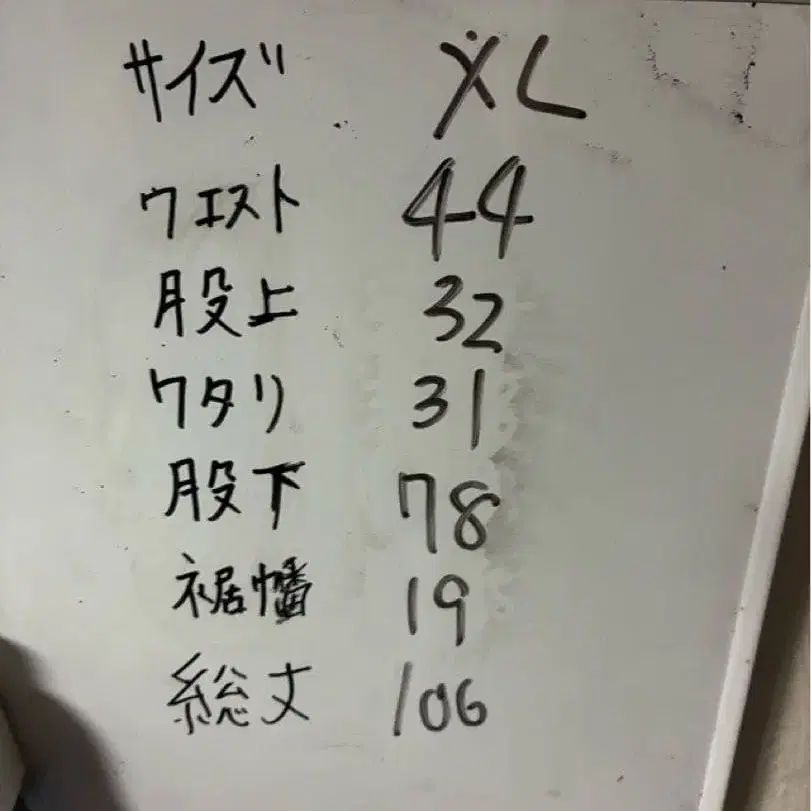 サイズ XL
ウエスト 44
股上 32
ワタリ 31
股下 78
裾幡 19
総丈 106